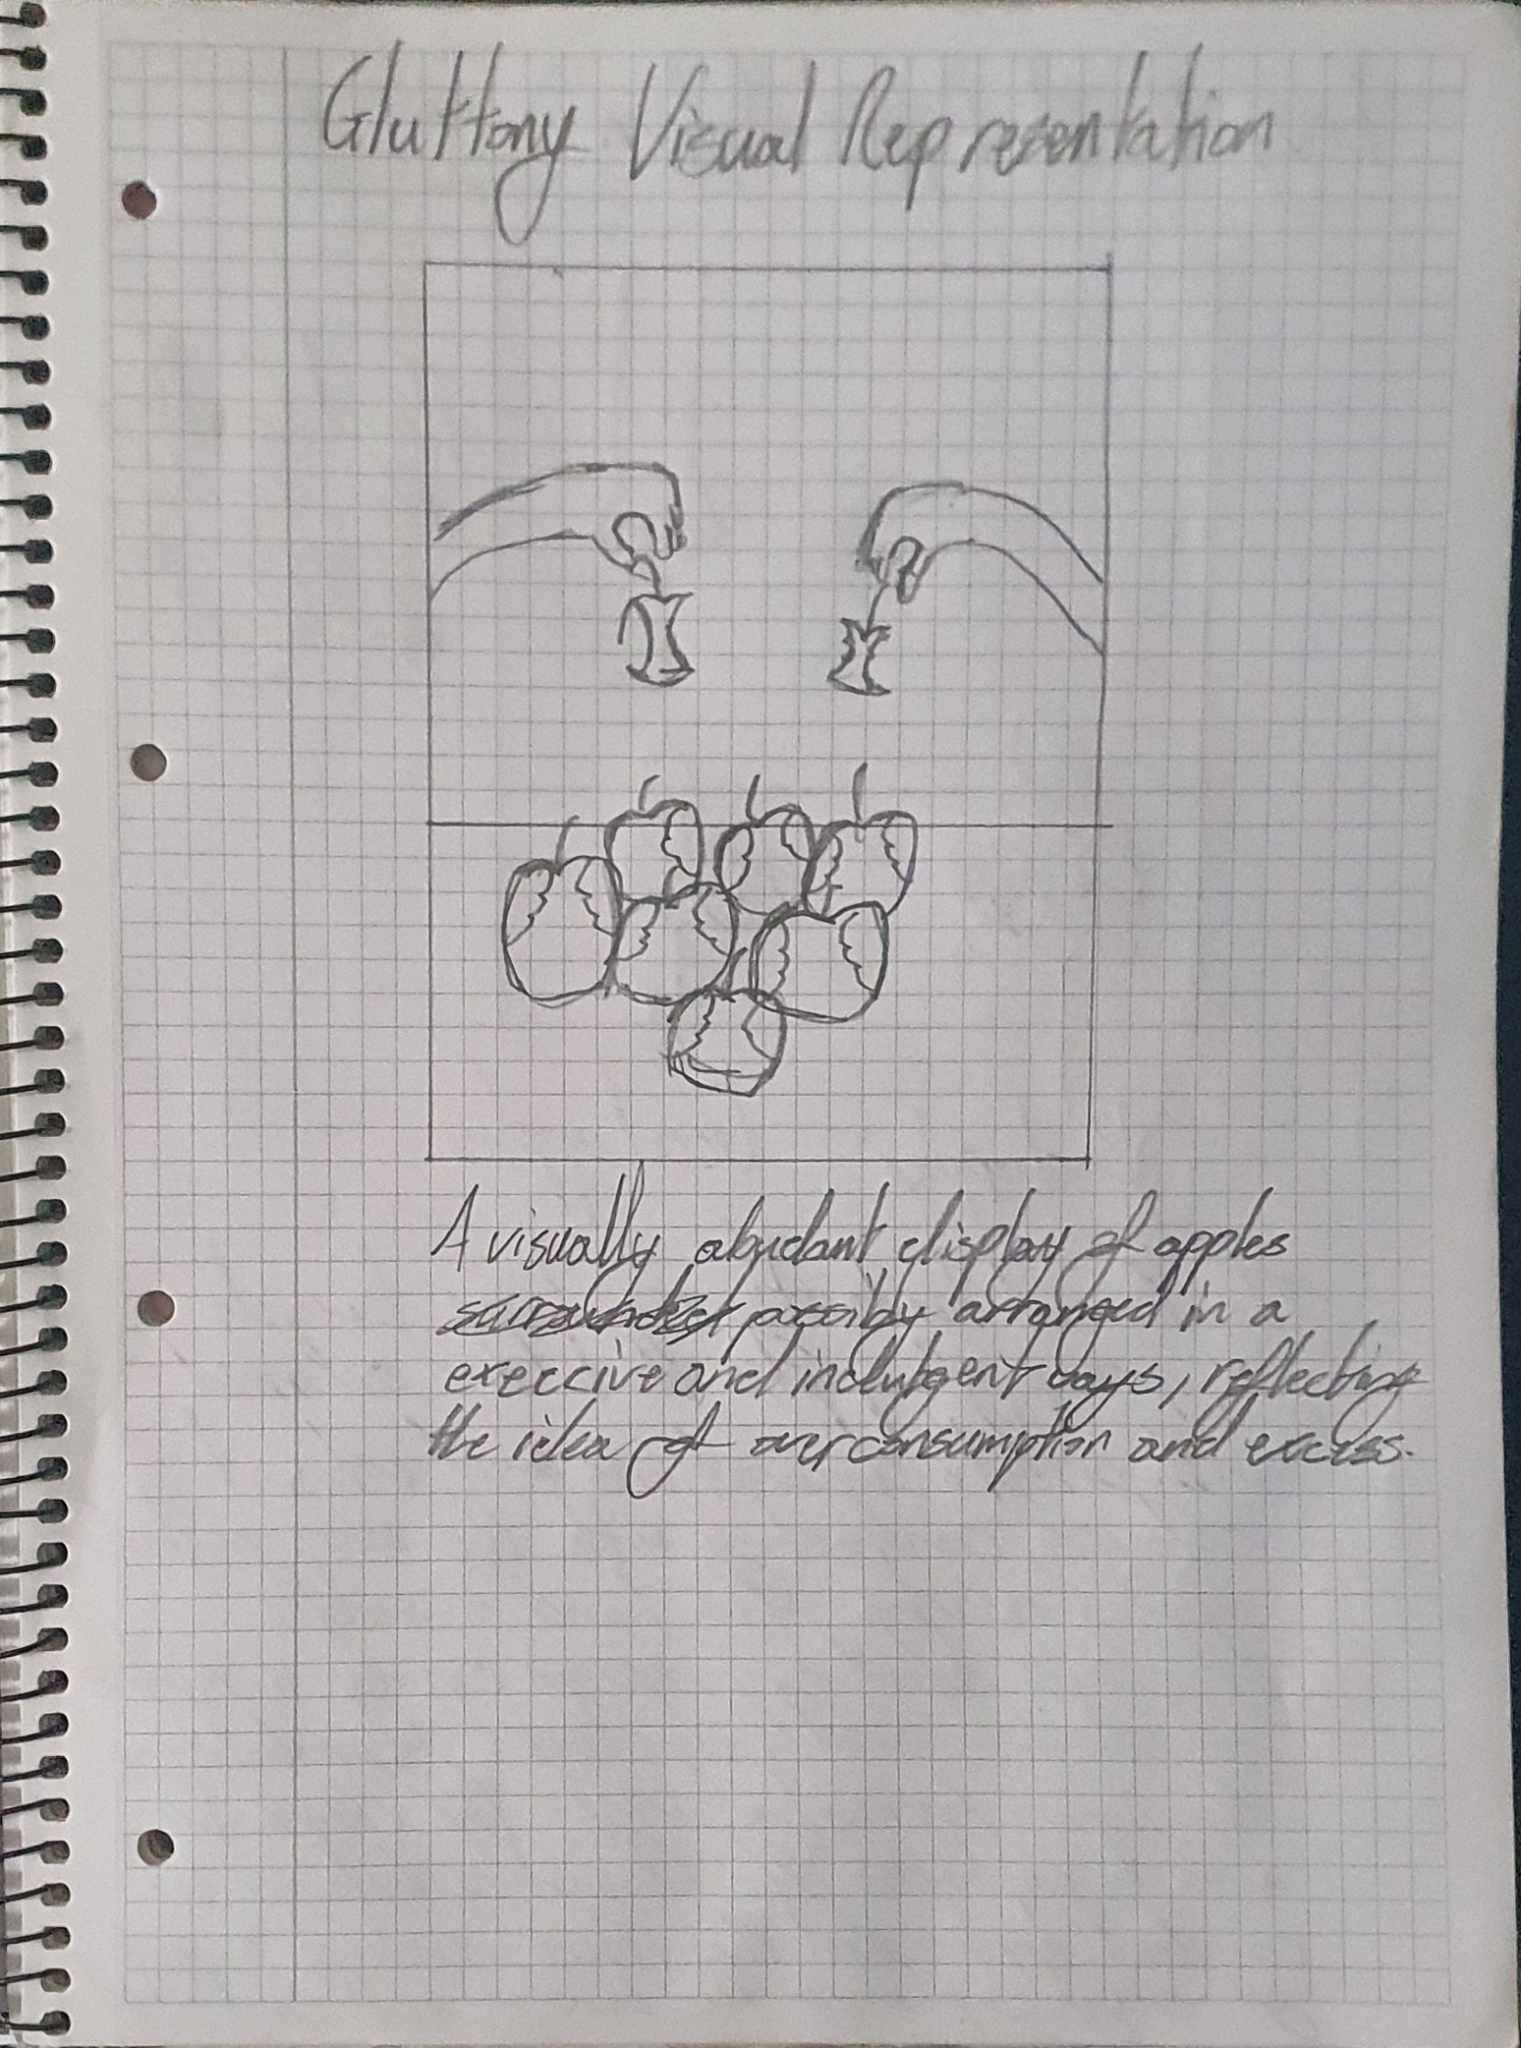 Gluttony Visual Representation
A visually abudant display of apples
surrounded possibly arranged in a
execcive and indulgent ways, reflecting
the idea of overconsumption and excess.